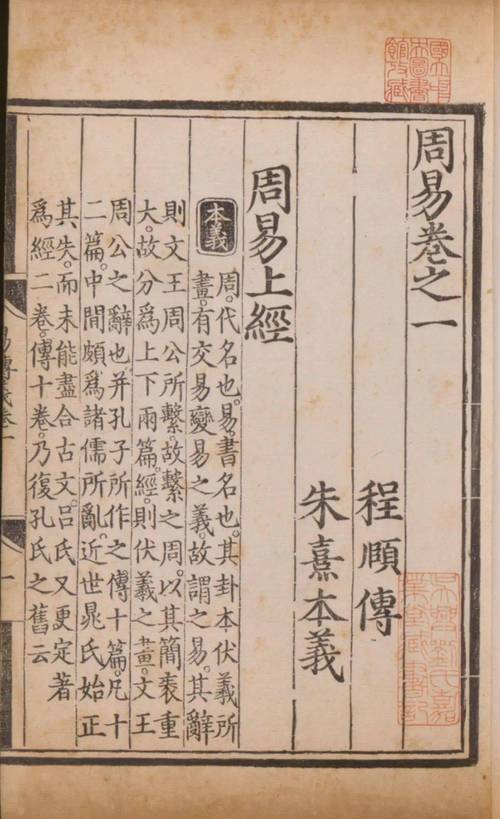 國立中央圖書館收藏
周易卷之一
吳興劉氏嘉業堂藏書記
程頤傳
朱熹本義
周易上經
本義
周。代名也。易。書名也。其卦本伏羲所
畫。有交易變易之義。故謂之易。其辭
則文王周公所繫。故繫之周。以其簡袠重
大。故分爲上下兩篇。經。則伏羲之畫。文王
周公之辭也。并孔子所作之傳十篇。凡十
二篇。中間頗爲諸儒所亂。近世晁氏始正
其失。而未能盡合古文。吕氏又更定著
爲經二卷。傳十卷。乃復孔氏之舊云